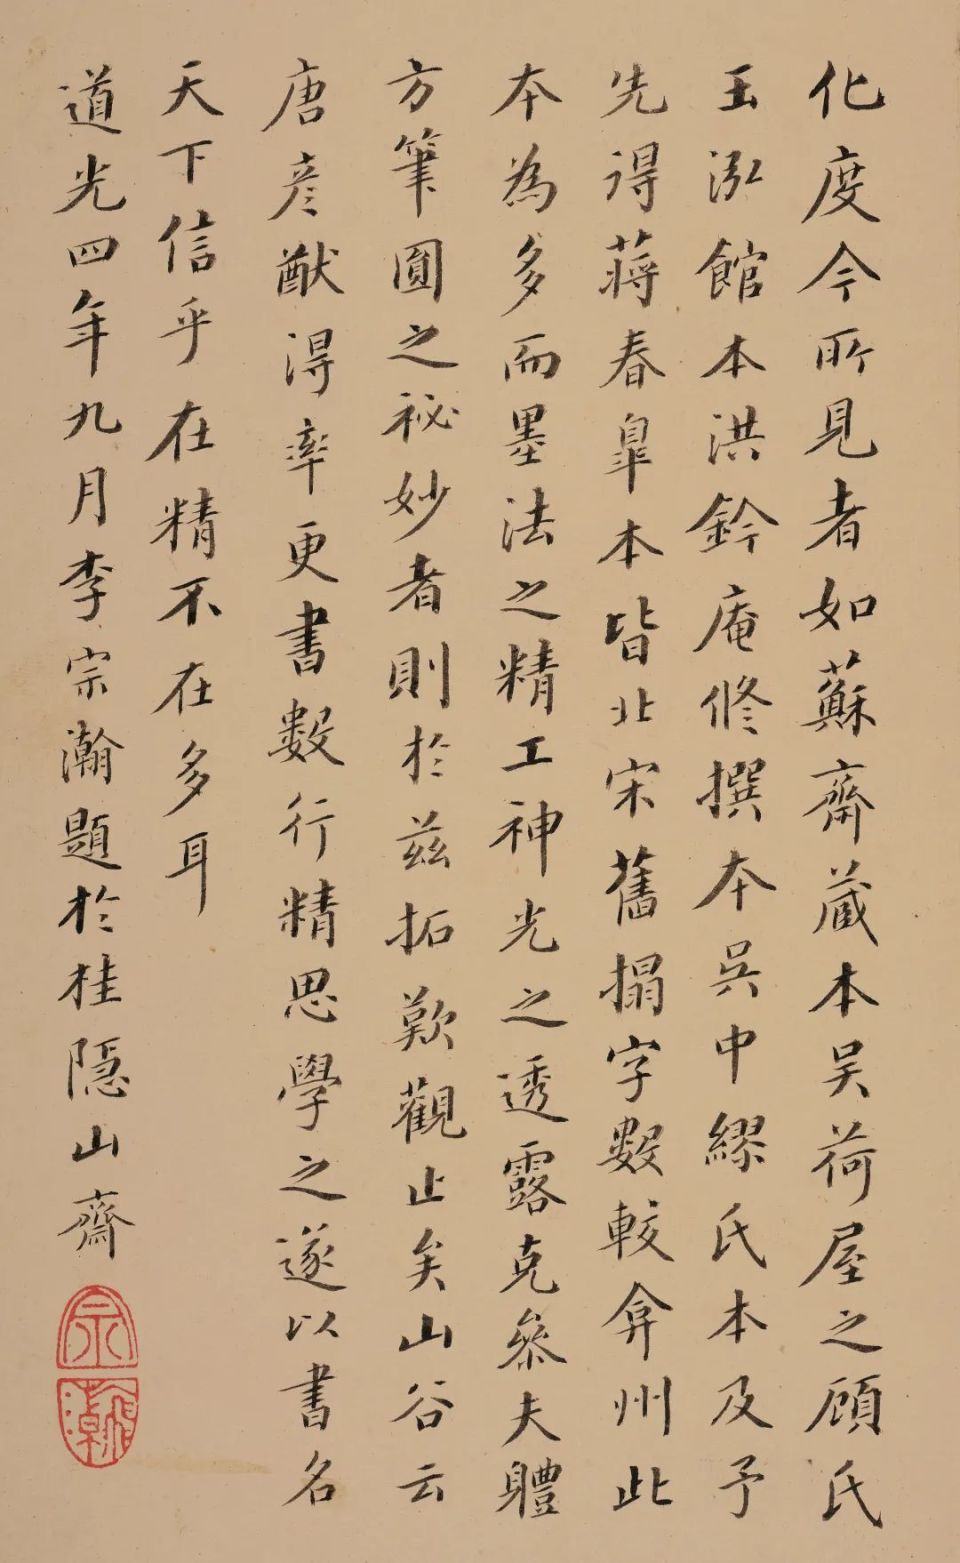 化度今所見者如蘇齋蔵本吴荷屋之顧氏
玉泓館本洪鈐庵修撰本吳中繆氏本及予
先得蔣春皐本皆北宋舊搨字數較弇州此
本為多而墨法之精工神光之透露克叅夫體
方筆圓之祕妙者則於兹拓歎觀止矣山谷云
唐彦猷得率更書數行精思學之遂以書名
天下信乎在精不在多耳
道光四年九月李宗瀚題於桂隱山齋
宗
瀚